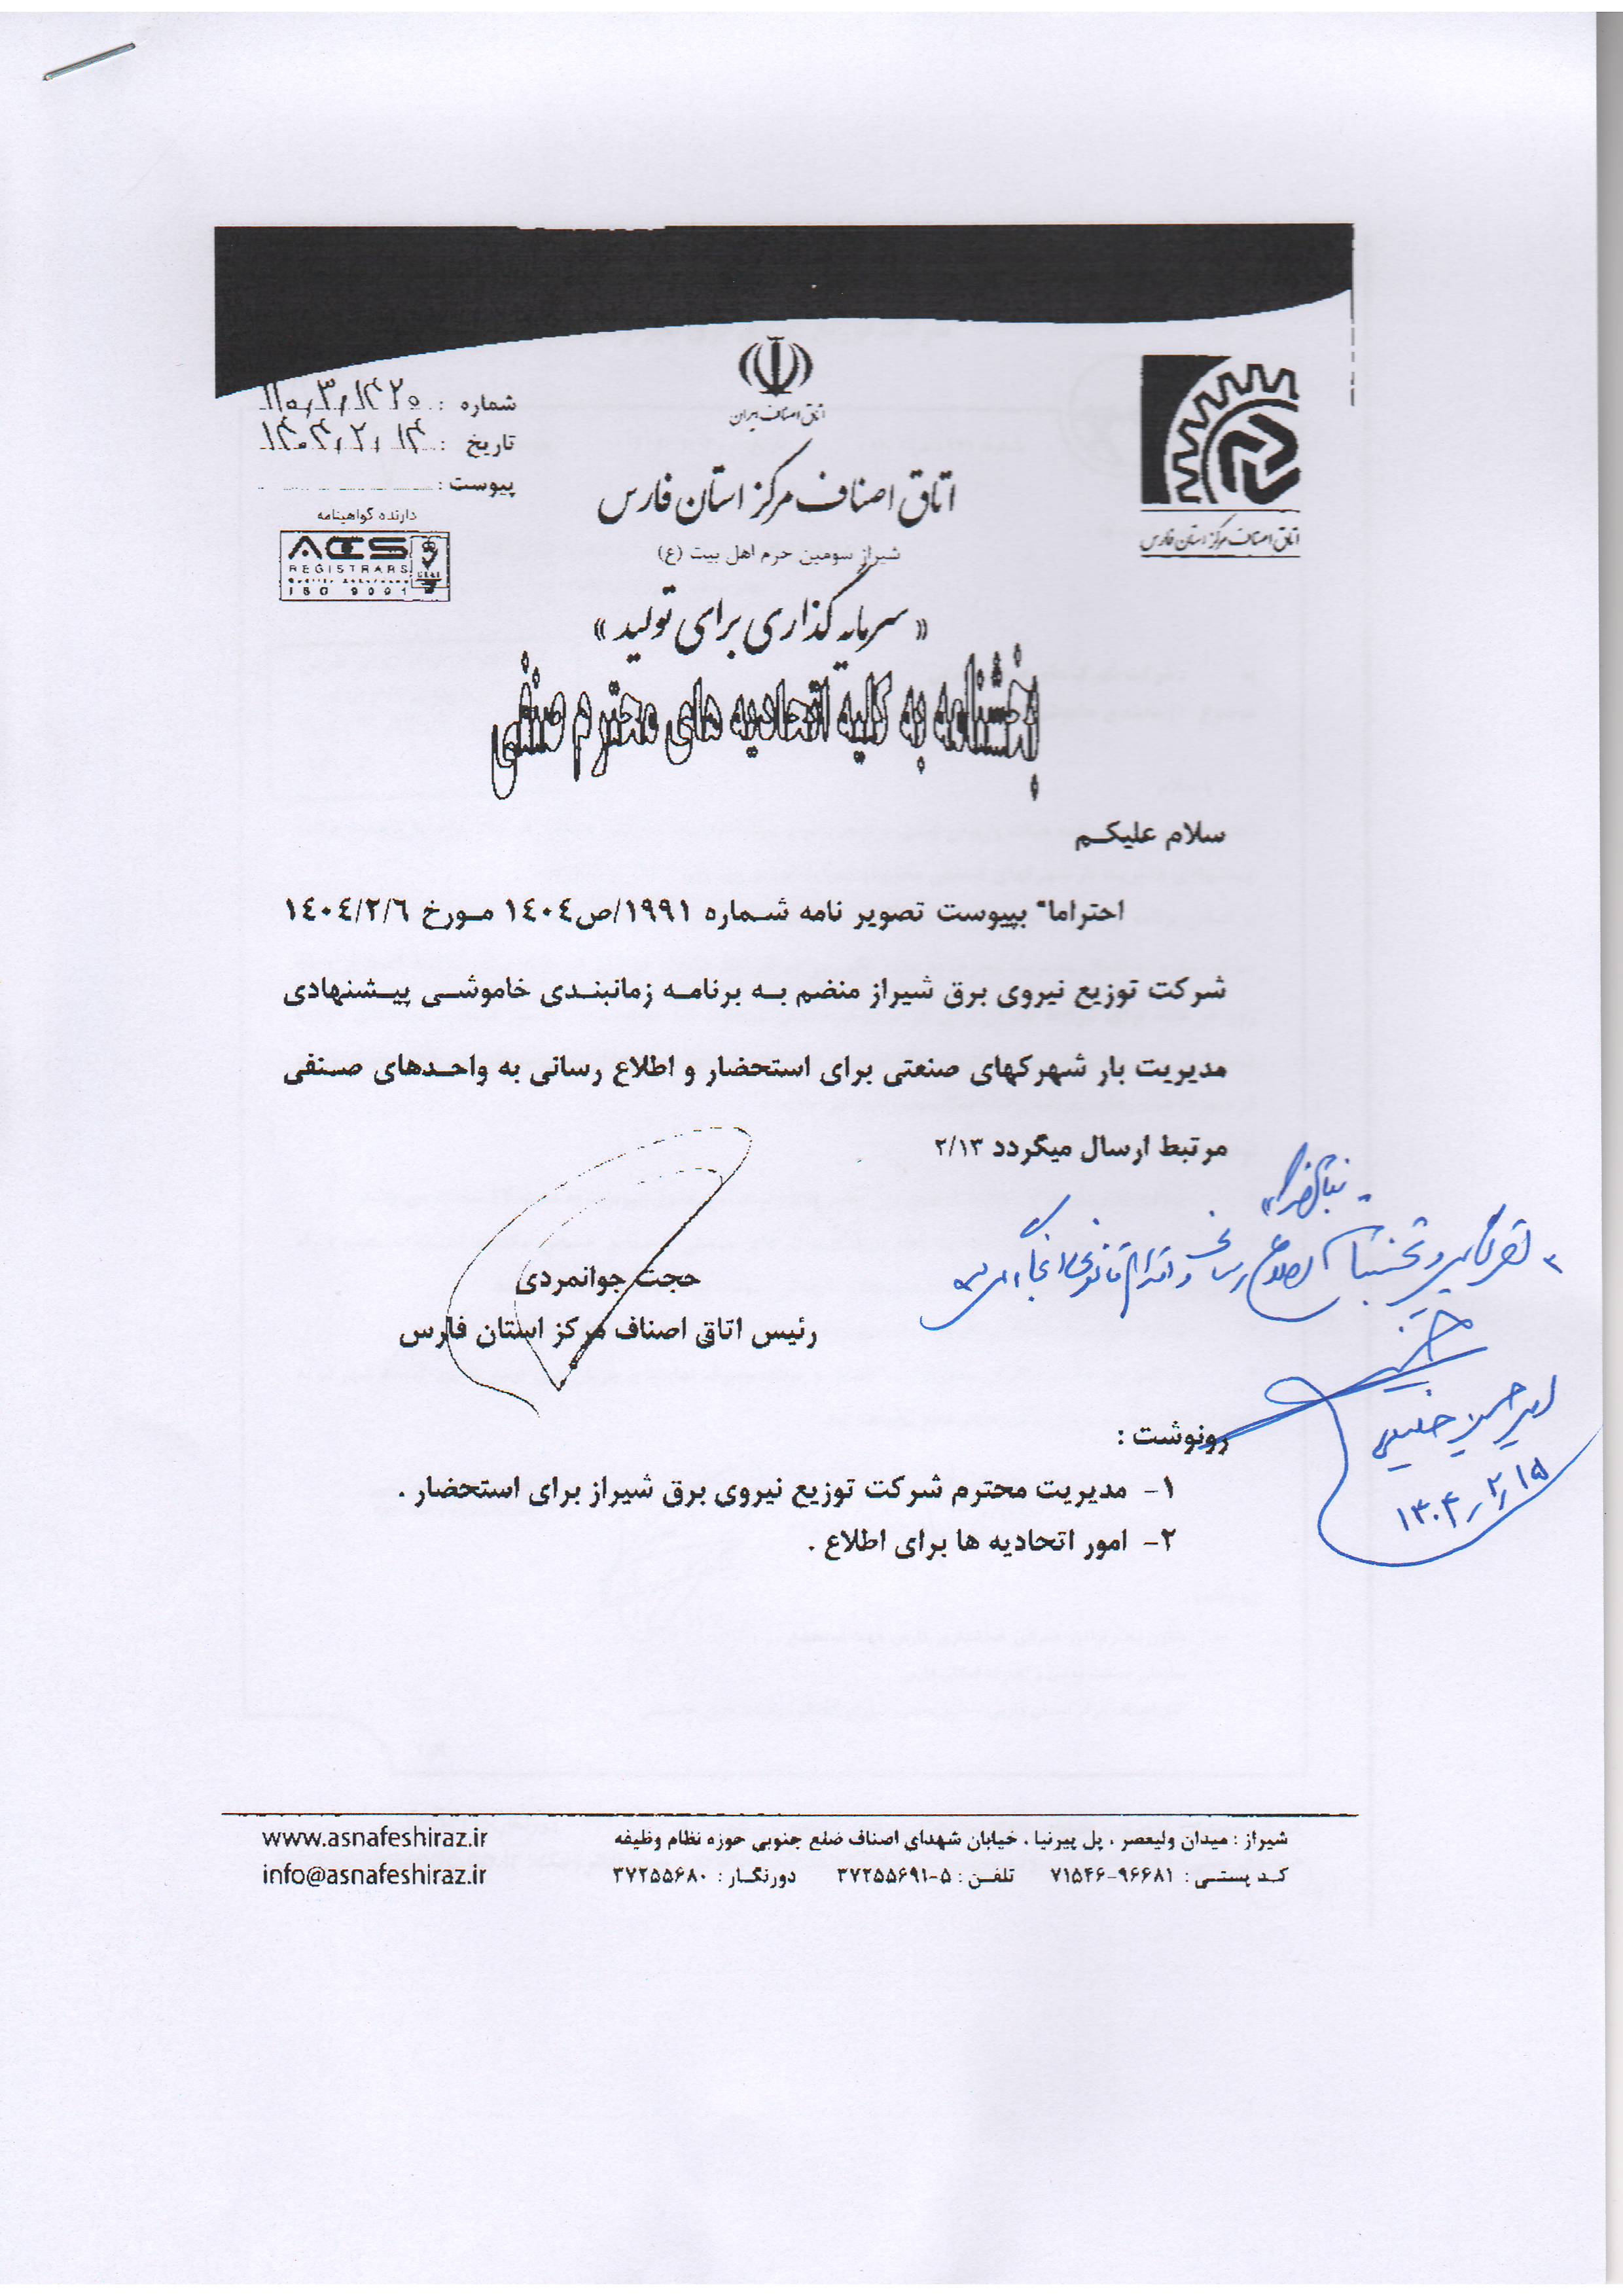 اتاق اصناف ایران
شماره : ۱۱۰٫۳٫۱۴۲۰
تاریخ : ۱۴۰۴٫۲٫۱۴
پیوست :
دارنده گواهینامه
ACS
REGISTRARS
ISO 9001
اتاق اصناف مرکز استان فارس
شیراز سومین حرم اهل بیت (ع)
اتاق اصناف مرکز استان فارس
« سرمایه گذاری برای تولید »
بخشنامه به کلیه اتحادیه های محترم صنفی
سلام علیکم
احتراما" بپیوست تصویر نامه شماره ۱۹۹۱/ص۱٤۰٤ مورخ ۱٤۰٤/۲/٦
شرکت توزیع نیروی برق شیراز منضم به برنامه زمانبندی خاموشی پیشنهادی
مدیریت بار شهرکهای صنعتی برای استحضار و اطلاع رسانی به واحدهای صنفی
مرتبط ارسال میگردد ۲/۱۳
حجت جوانمردی
رئیس اتاق اصناف مرکز استان فارس
امیرحسین
۱۴۰۴٫۲٫۱۵
رونوشت :
۱- مدیریت محترم شرکت توزیع نیروی برق شیراز برای استحضار .
۲- امور اتحادیه ها برای اطلاع .
شیراز : میدان ولیعصر ، پل پیرنیا ، خیابان شهدای اصناف ضلع جنوبی حوزه نظام وظیفه
www.asnafeshiraz.ir
کد پستی : ۹۶۶۸۱-۷۱۵۴۶ تلفن : ۵-۳۷۲۵۵۶۹۱ دورنگار : ۳۷۲۵۵۶۸۰
info@asnafeshiraz.ir